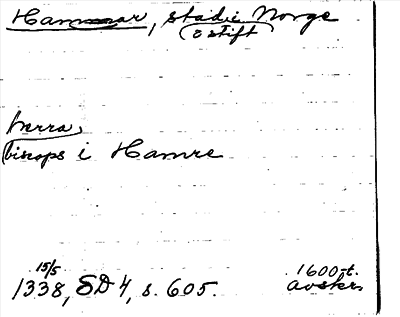 Hammar, stad i Norge
o stift
herra,
biscops i Hamre
15/5
1338, SD 4, s. 605.
1600-t.
avskr.